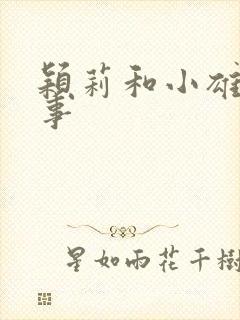 穎莉和小雄
事
星如雨花千樹